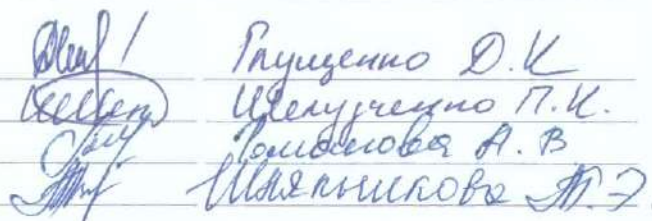 Глущенко Д.К
Шелудченко П.К.
Томашова А.В
Шляпникова Т.Э.